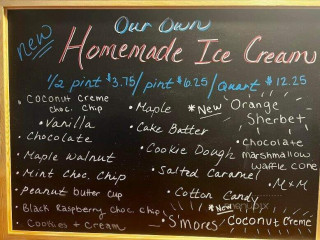 new
Our Own
Homemade Ice Cream
1/2 pint $3.75/ pint $6.25/ Quart $12.25
• Coconut Creme choc. chip
• Vanilla
• Chocolate
• Maple Walnut
• Mint Choc. Chip
• peanut butter cup
• Black Raspberry choc chip
Cookies + Cream
• Maple
• Cake Batter
• Cookie Dough
• Salted Caramel
• Cotton Candy
*New
• S'mores
*New
Orange
Sherbet
• Chocolate
marshmallow
waffle cone
• M+M
Coconut Creme